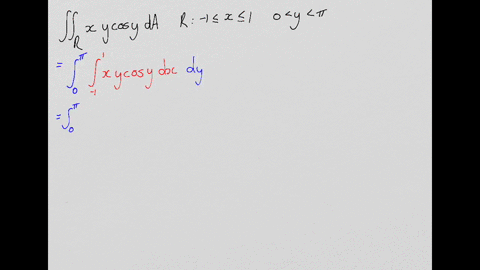 ∬_R x y cos y dA   R: -1 ≤ x ≤ 1   0 < y < π
= ∫_0^π ∫_{-1}^1 x y cos y dx dy
= ∫_0^π